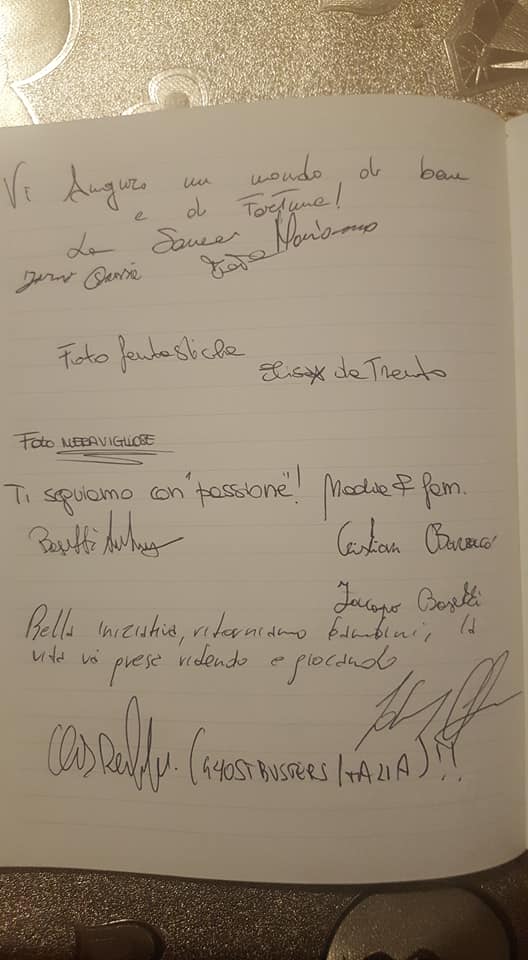 Vi Auguro un mondo di bene
e di Fortuna!
Da
Foto fantastiche
Elisa de Trento
Foto MERAVIGLIOSE
Ti seguiamo con "passione"! & fam.
Bosetti
Cristian
Jacopo Bosetti
Bella iniziativa, ritorniamo bambini, la
vita va presa ridendo e giocando
(GHOSTBUSTERS ITALIA)!!